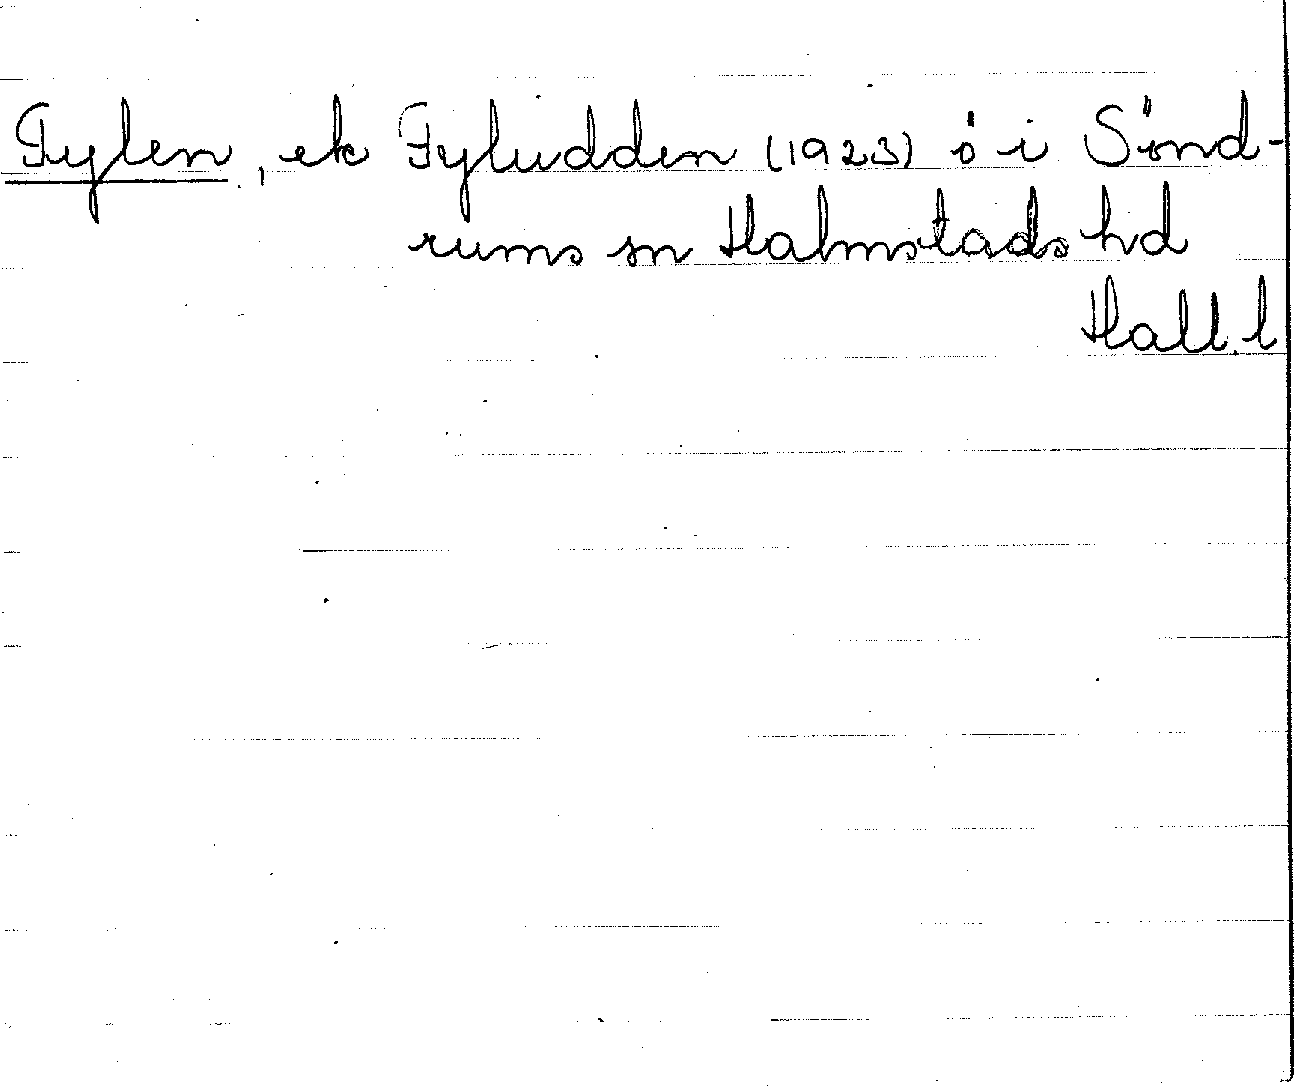 Fylen, ek Fyludden (1923) ö i Sönd-
rums sn Halmstads hd
Hall. l